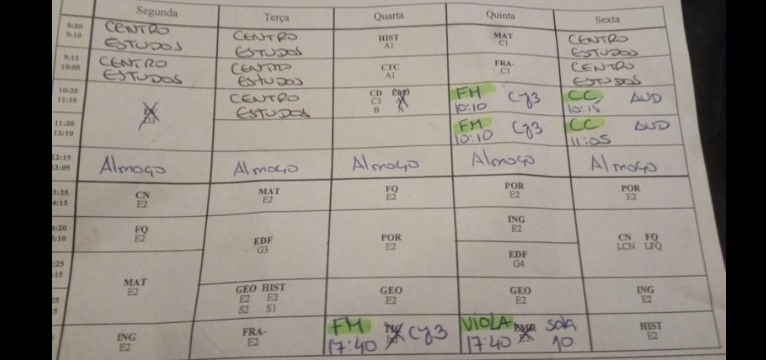 Segunda Terça Quarta Quinta Sexta
8:20
9:10
CENTRO
ESTUDOS
CENTRO
ESTUDOS
HIST
A1
MAT
C1
CENTRO
ESTUDOS
9:15
10:05
CENTRO
ESTUDOS
CENTRO
ESTUDOS
CTC
A1
FRA-
C1
CENTRO
ESTUDOS
10:20
11:10
CENTRO
ESTUDOS
CD
C3
B
FM Cy3
10:10
CC AUD
10:15
11:20
12:10
FM Cy3
10:10
CC AUD
11:05
12:15
13:05
Almoço Almoço Almoço Almoço Almoço
3:25
4:15
CN
E2
MAT
E2
FQ
E2
POR
E2
POR
E2
4:20
5:10
FQ
E2
EDF
G3
POR
E2
ING
E2
CN FQ
LCN LFQ
:25
:15
MAT
E2
EDF
G4
GEO HIST
E2 E2
S2 S1
GEO
E2
GEO
E2
ING
E2
ING
E2
FRA-
E2
FM Cy3
17:40
VIOLA sala
17:40 10
HIST
E2